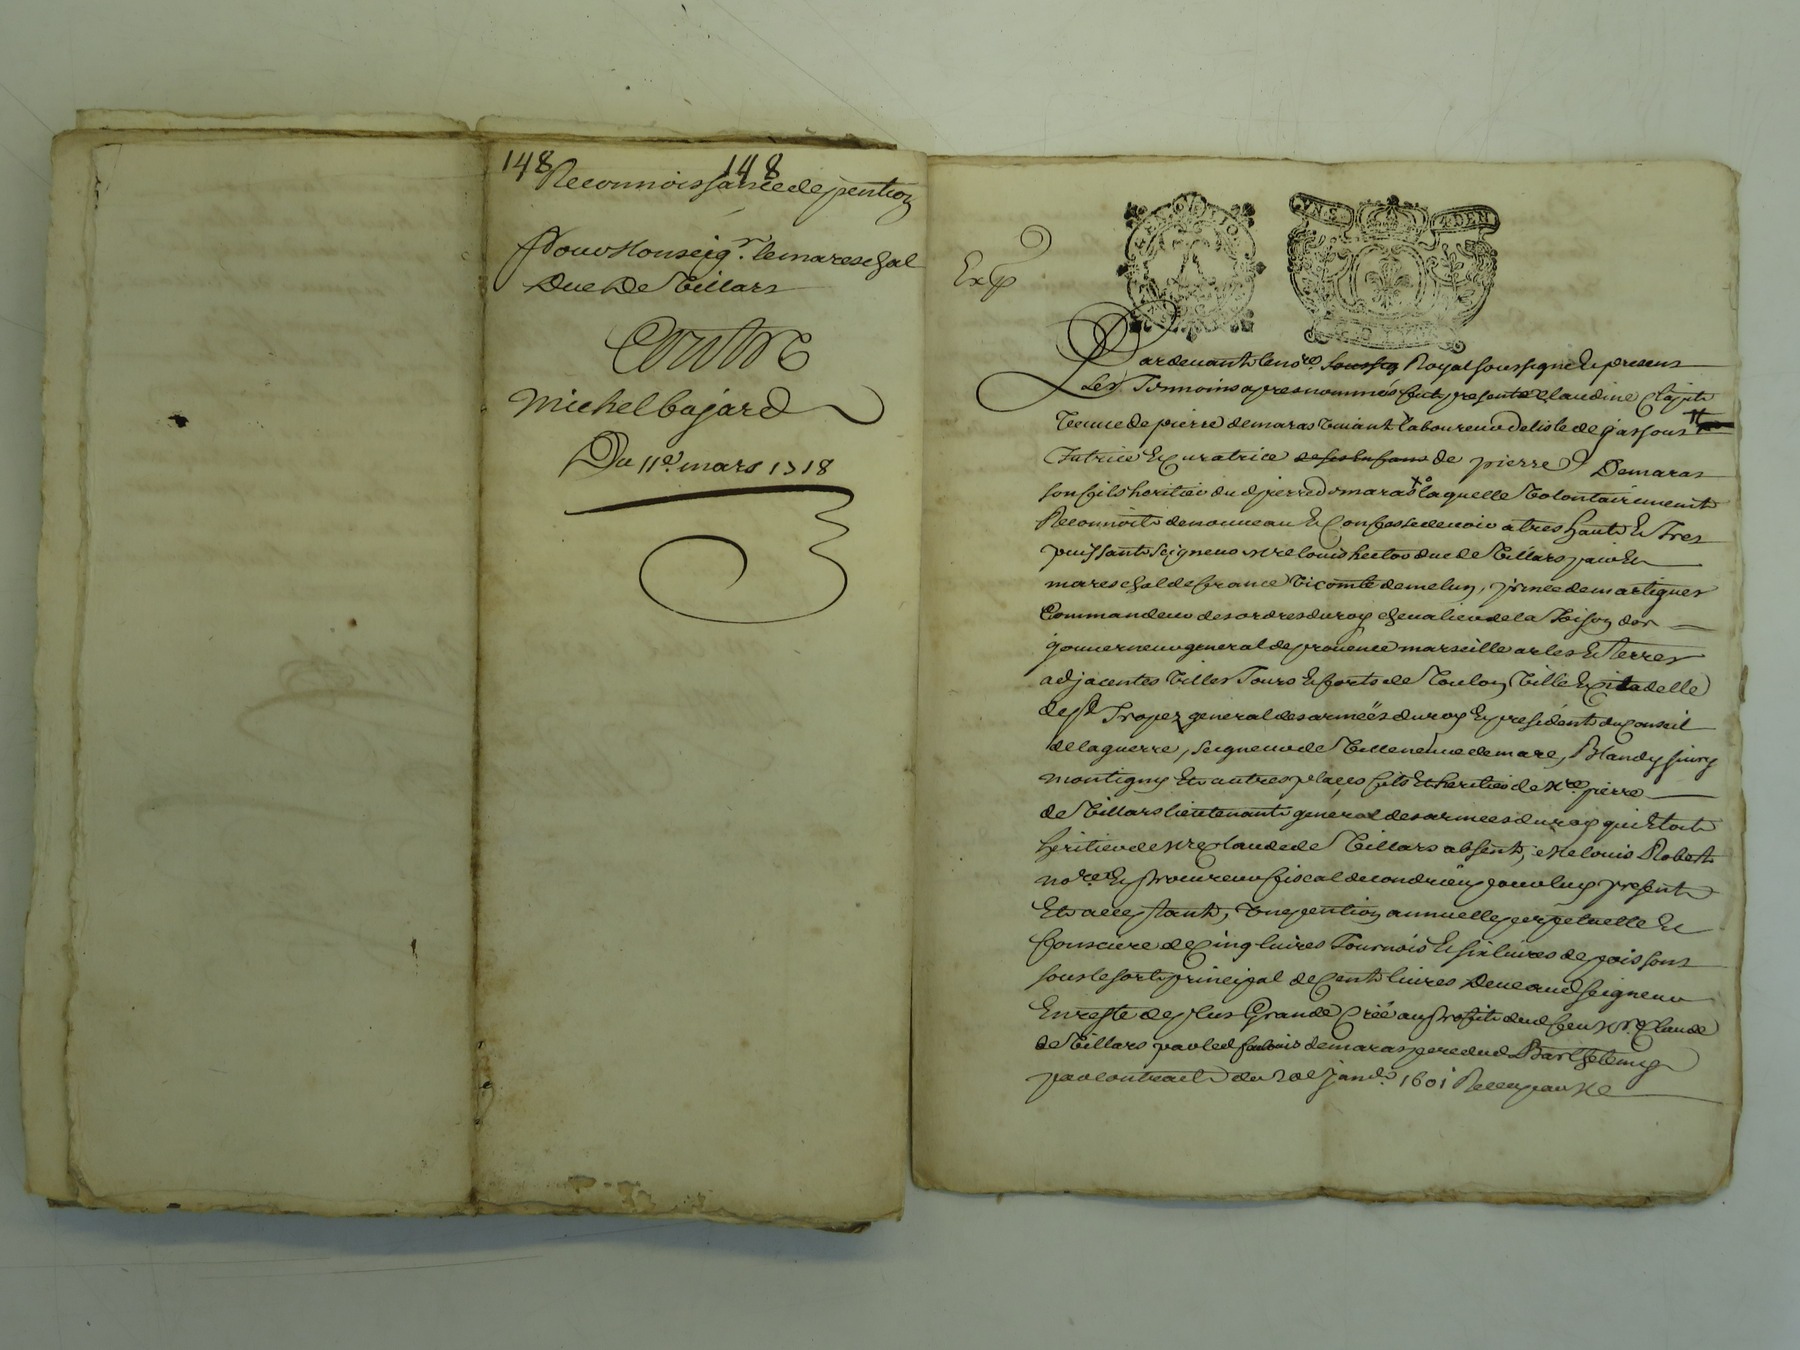 148 148
Reconnoissance de pention
Pour Monseigr. le mareschal
Duc De Villars
Contre
Michel bajard
Du 11e. mars 1718
Exp
Pardevant le nore. soussig Royal soussigné Et presens
Les Temoins apres nommés fut presente Claudine
veuve de pierre demaras vivant laboureur de
Tutrice Et Curatrice de ses Enfans de pierre Demaras
son fils heritier du d pierre demaras laquelle Volontairement
Reconnoit de nouveau Et Confesse devoir a tres haut Et Tres
puissant seigneur Mre louis hector duc de Villars pair Et
mareschal de france Vicomte de melun, prince de martigues
Commandeur des ordres du roy chevalier de la Toison dor
gouverneur general de provence marseille arles Et Terres
adjacentes Villes Tours Et forts de Toulon Ville Et Citadelle
de st Tropez general des armeés du roy Et president du Conseil
de la guerre, seigneur de Villeneuve demare, Blandy sivry
montigny Et autres places fils Et heritier de Mre. pierre
de Villars lieutenant general des armees du roy qui Etoit
heritier de Mre Claude de Villars absent, Me louis Robert
nore. Et procureur fiscal de condrieu pour luy present
Et acceptant, Une pention annuelle perpetuelle Et
fonsciere de Cinq livres Tournois Et six livres de poissons
sous le sort principal de Cent livres Deue aud seigneur
En reste de plus Grande Créé au profit dud feu Mr. Claude
de Villars par led demaras pere dud Barthelemy
par contract du janv. 1601 Receu par Me